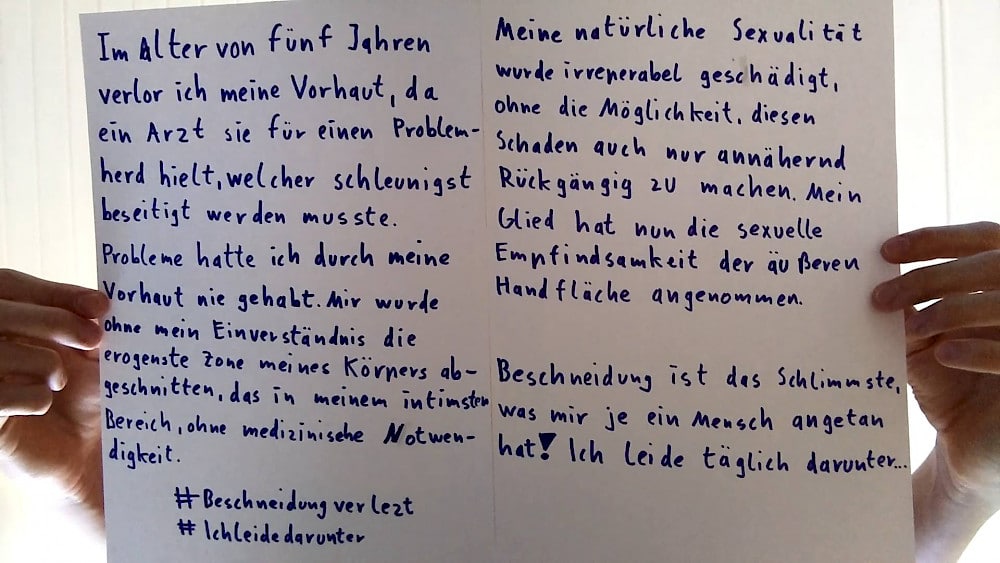 Im Alter von fünf Jahren
verlor ich meine Vorhaut, da
ein Arzt sie für einen Problem-
herd hielt, welcher schleunigst
beseitigt werden musste.
Probleme hatte ich durch meine
Vorhaut nie gehabt. Mir wurde
ohne mein Einverständnis die
erogenste Zone meines Körpers ab-
geschnitten, das in meinem intimsten
Bereich, ohne medizinische Notwen-
digkeit.
#Beschneidungverlezt
#Ichleidedarunter
Meine natürliche Sexualität
wurde irreperabel geschädigt,
ohne die Möglichkeit, diesen
Schaden auch nur annähernd
Rückgängig zu machen. Mein
Glied hat nun die sexuelle
Empfindsamkeit der äußeren
Handfläche angenommen.
Beschneidung ist das Schlimmste,
was mir je ein Mensch angetan
hat! Ich leide täglich darunter...